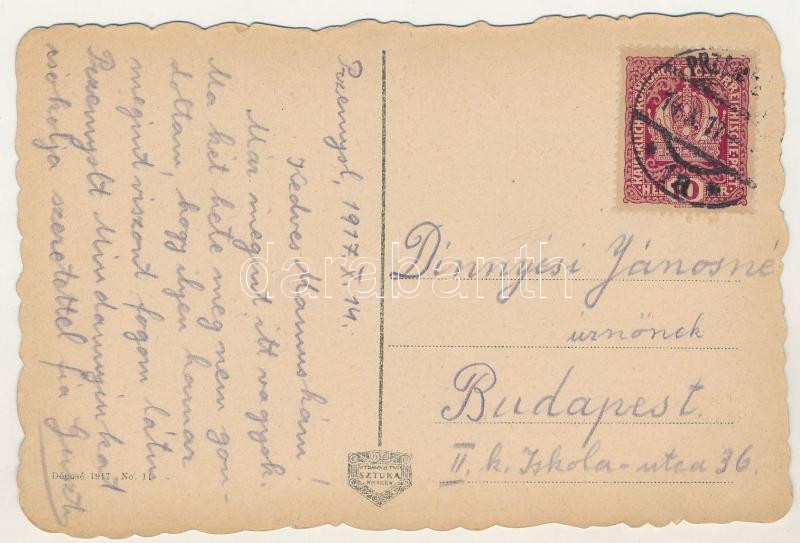 Przemysl, 1917.X.14.
Kedves Mamuskám!
Már megint itt vagyok.
Ma két hete még nem gon-
doltam, hogy ilyen hamar
megint viszont fogom látni
Przemyslt Mindannyiukat
csókolja szeretettel fia
Dépusé 1917 - No. 11
WYDAWNICTWO
SZTUKA
W KRAKOWIE
KAISERLICH KÖNIGLICH ÖSTERREICHISCHE POST
10
HELLER
14.X.17
Dinnyési Jánosné
úrnőnek
Budapest.
II. k. Iskola-utca 36.
darabanth